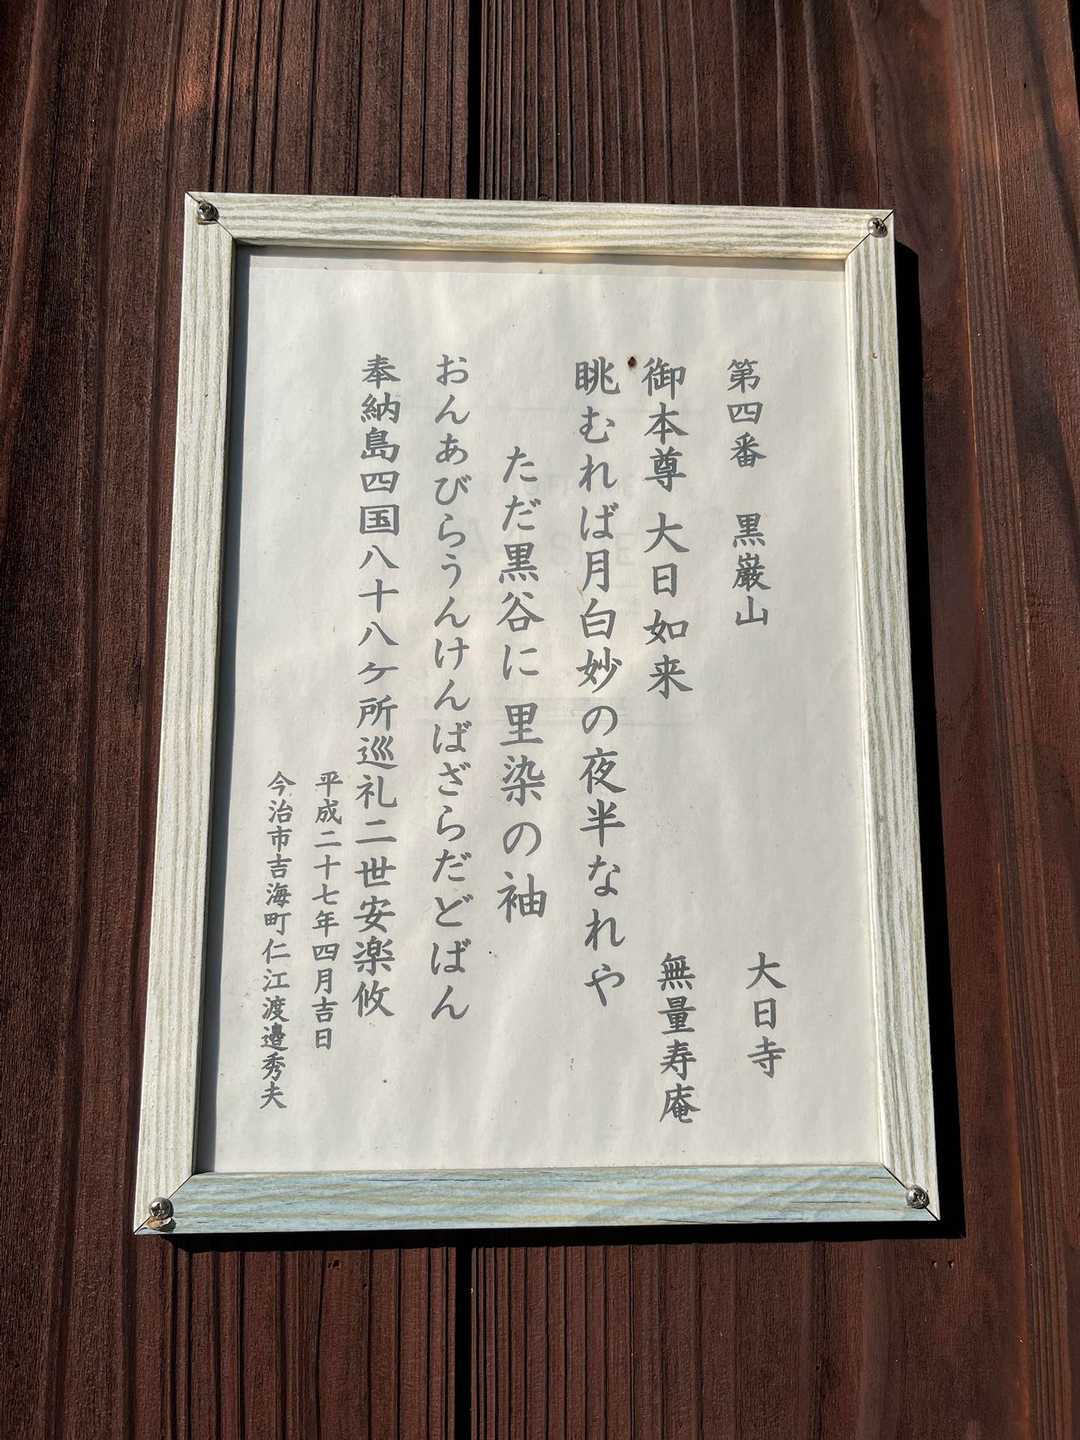 第四番 黒巌山 大日寺
御本尊 大日如来 無量寿庵
眺むれば月白妙の夜半なれや
ただ黒谷に里染の袖
おんあびらうんけんばざらだどばん
奉納島四国八十八ヶ所巡礼二世安楽攸
平成二十七年四月吉日
今治市吉海町仁江渡邉秀夫